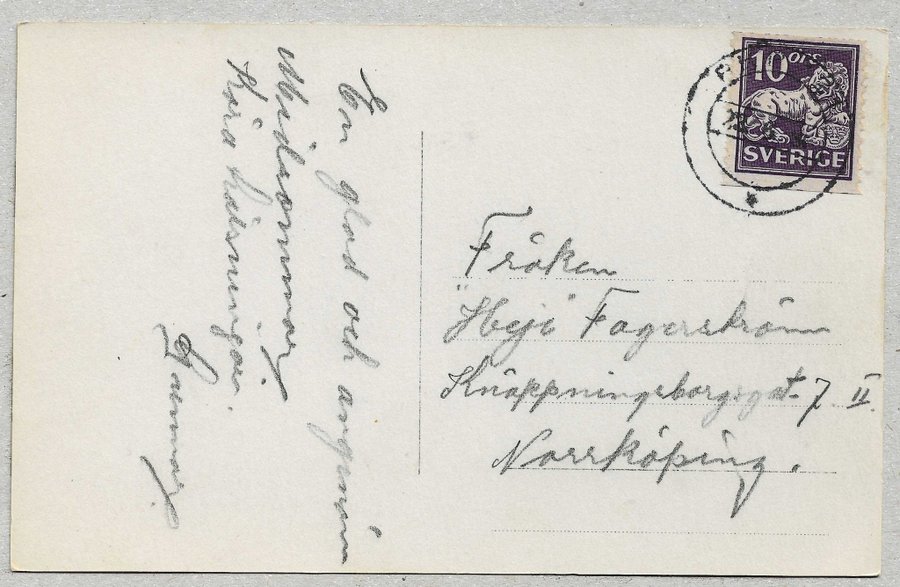 En glad och angenäm
Midsommar
Kära hälsningar.
Gunnar.
10 ÖRE
SVERIGE
Fröken
Heji Fagerström
Knäppningsborgsgat. 7 II.
Norrköping.